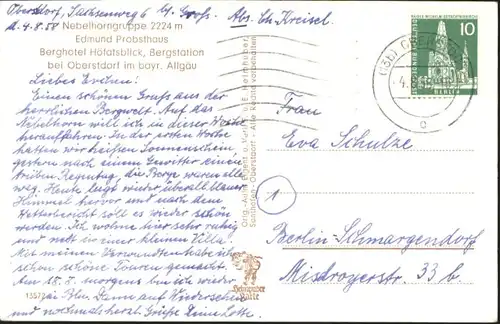 Oberstdorf, Sachsenweg 6 b/ Groß. Abs. Ch. Kreisel.
d. 4.8.58
Nebelhorngruppe 2224 m
Edmund Probsthaus
Berghotel Höfatsblick, Bergstation
bei Oberstdorf im bayr. Allgäu
Liebes Evchen!
Einen schönen Gruß aus der
herrlichen Bergwelt. Auf das
Nebelhorn will ich in dieser Woche
herauffahren. In der ersten Woche
hatten wir heißen Sonnenschein
gestern nach einem Gewitter einen
trüben Regentag, die Berge waren alle
weg. Heute lugt wieder überall blauer
Himmel hervor und nach dem
Wetterbericht soll es wieder schön
werden. Ich wohne hier sehr ruhig
und nett in einer kleinen Villa.
Mit meinen Verwandten habe ich
schon schöne Touren gemacht.
Am 18.8. morgens bin ich wieder
in Bln. Dann auf Wiedersehen
und nochmals herzl. Grüße Deine Lotte.
1557
Frau
Eva Schulze
1
Berlin-Schmargendorf
Misdroyerstr. 33 b
10
DEUTSCHE POST
BERLIN
(13b) OBERSTDORF